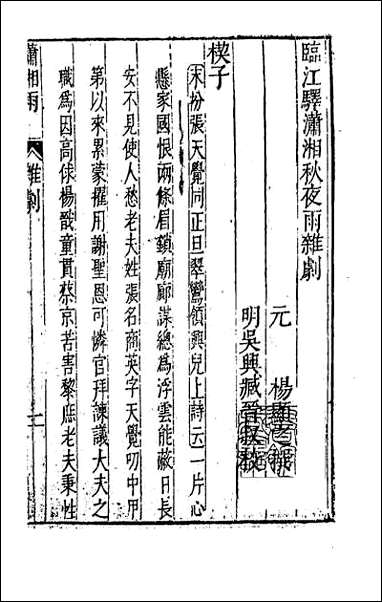 臨江驛瀟湘秋夜雨雜劇
元　楊顯之撰
明吳興臧晉叔校
楔子
末扮張天覺同正旦翠鸞領興兒上詩云一片心
懸家國恨兩條眉鎖廟廊謀總爲浮雲能蔽日長
安不見使人愁老夫姓張名商英字天覺叨中甲
第以來累蒙擢用謝聖恩可憐官拜諫議大夫之
職爲因高俅楊戩童貫蔡京苦害黎庶老夫秉性
瀟湘雨　雜劇　一